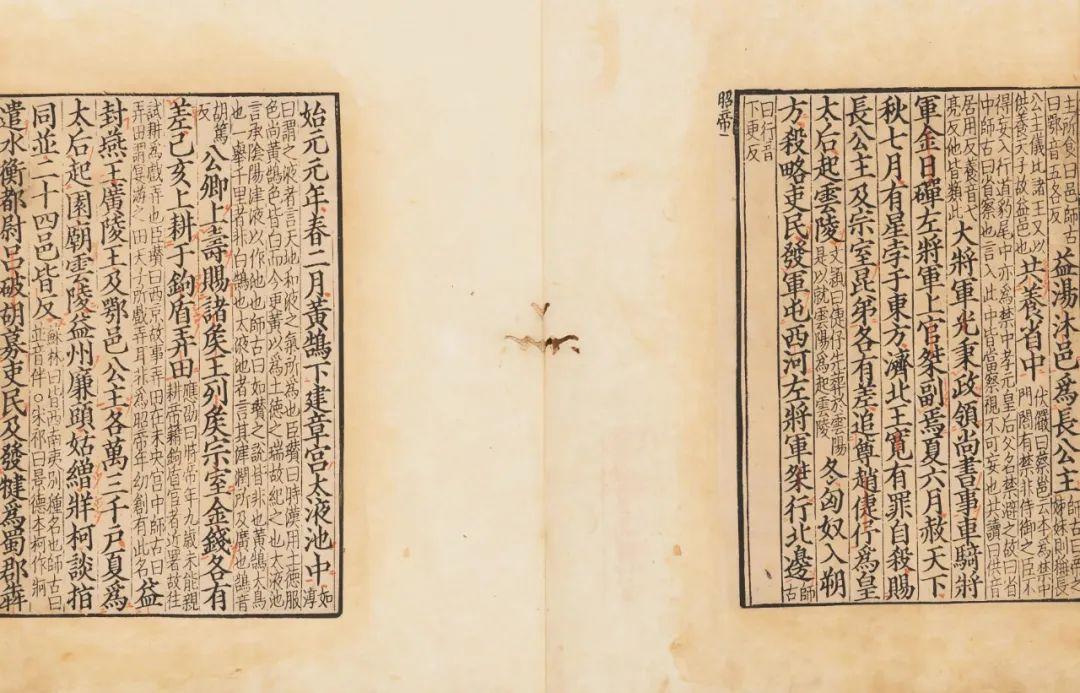 主所食曰邑師古
曰鄂音五各反
益湯沐邑爲長公主
師古曰帝之
姊妹則稱長
公主儀比諸王又以
供養天子故益邑也
共養省中
伏儼曰蔡邕云本爲禁中
門閤有禁非侍御之臣不
得妄入行道豹尾中亦爲禁中孝元皇后父名禁避之故曰省
中師古曰省察也言入此中皆當察視不可妄也共讀曰供音
居用反養音弋
亮反他皆類此
大將軍光秉政領尚書事車騎將
軍金日磾左將軍上官桀副焉夏六月赦天下
秋七月有星孛于東方濟北王寬有罪自殺賜
長公主及宗室昆弟各有差追尊趙倢伃爲皇
太后起雲陵
文穎曰倢伃先葬於雲陽
是以就雲陽爲起雲陵
冬匈奴入朔
方殺略吏民發軍屯西河左將軍桀行北邊
師
古
曰行音
下更反
昭帝一
始元元年春二月黃鵠下建章宮太液池中
如
淳
曰謂之液者言天地和液之氣所爲也臣瓚曰時漢用土德服
色尚黃鵠色皆白而今更黃以爲土德之瑞故紀之也太液池
言承陰陽津液以作池也師古曰如瓚之說皆非也黃鵠大鳥
也一舉千里者非白鵠也太液池者言其津潤所及廣也鵠音
胡篤
反
公卿上壽賜諸侯王列侯宗室金錢各有
差己亥上耕于鉤盾弄田
應劭曰時帝年九歲未能親
耕帝籍鉤盾宦者近署故往
試耕爲戲弄也臣瓚曰西京故事弄田在未央宮中師古曰
弄田謂宴游之田天子所戲弄耳非爲昭帝年幼創有此名
益
封燕王廣陵王及鄂邑公主各萬三千戶夏爲
太后起園廟雲陵益州廉頭姑繒牂柯談指
同並二十四邑皆反
蘇林曰皆西南夷別種名也師古曰
並音伴○宋祁曰景德本柯作牁
遣水衡都尉呂破胡募吏民及發犍爲蜀郡犇